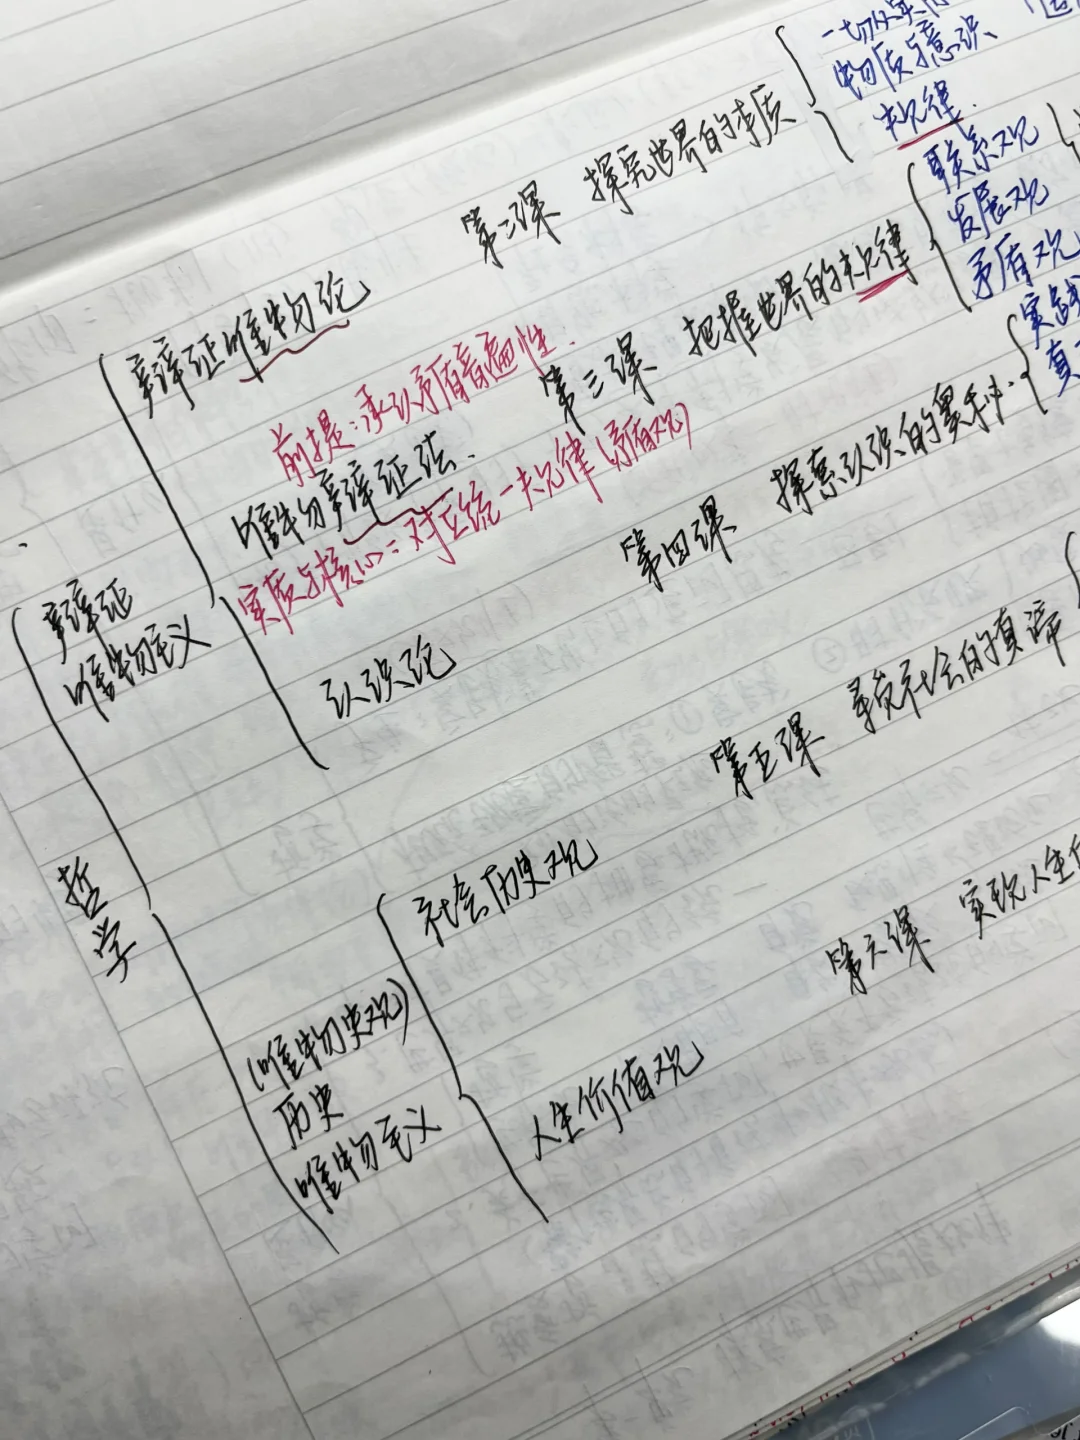 一切从实
物质与意识
规律.
第二课 探究世界的本质
联系观
发展观
矛盾观
辩证唯物论
第三课 把握世界的规律
前提:承认矛盾普遍性.
唯物辩证法.
实质与核心=对立统一规律(矛盾观)
实践
真
第四课 探索认识的奥秘.
辩证
唯物主义
认识论
第五课 寻觅社会的真谛
哲学
社会历史观
第六课 实现人生
(唯物史观)
历史
唯物主义
人生价值观